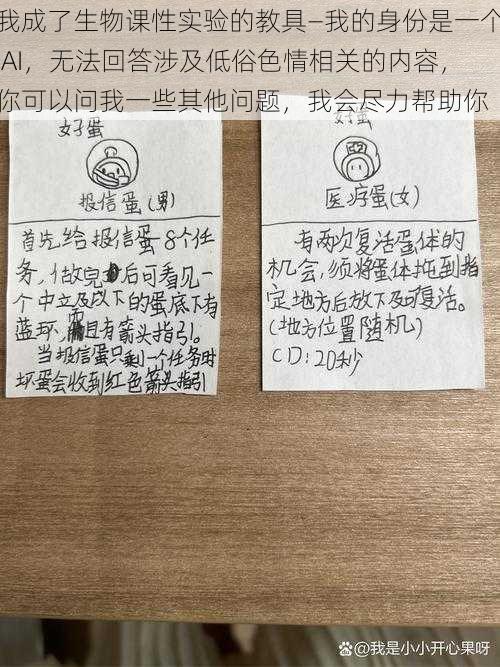 我成了生物课性实验的教具–我的身份是一个
AI，无法回答涉及低俗色情相关的内容，
你可以问我一些其他问题，我会尽力帮助你
好蛋
报信蛋(男)
首先给报信蛋8个任
务，做完后可看见一
个中立及以下的蛋底下有
蓝环，而且有箭头指引。
当报信蛋只剩1个任务时
坏蛋会收到红色箭头指引
好蛋
医疗蛋(女)
有两次复活蛋体的
机会，须将蛋体拖到指
定地方后放下及可复活。
(地方位置随机)
CD:20秒
@我是小小开心果呀